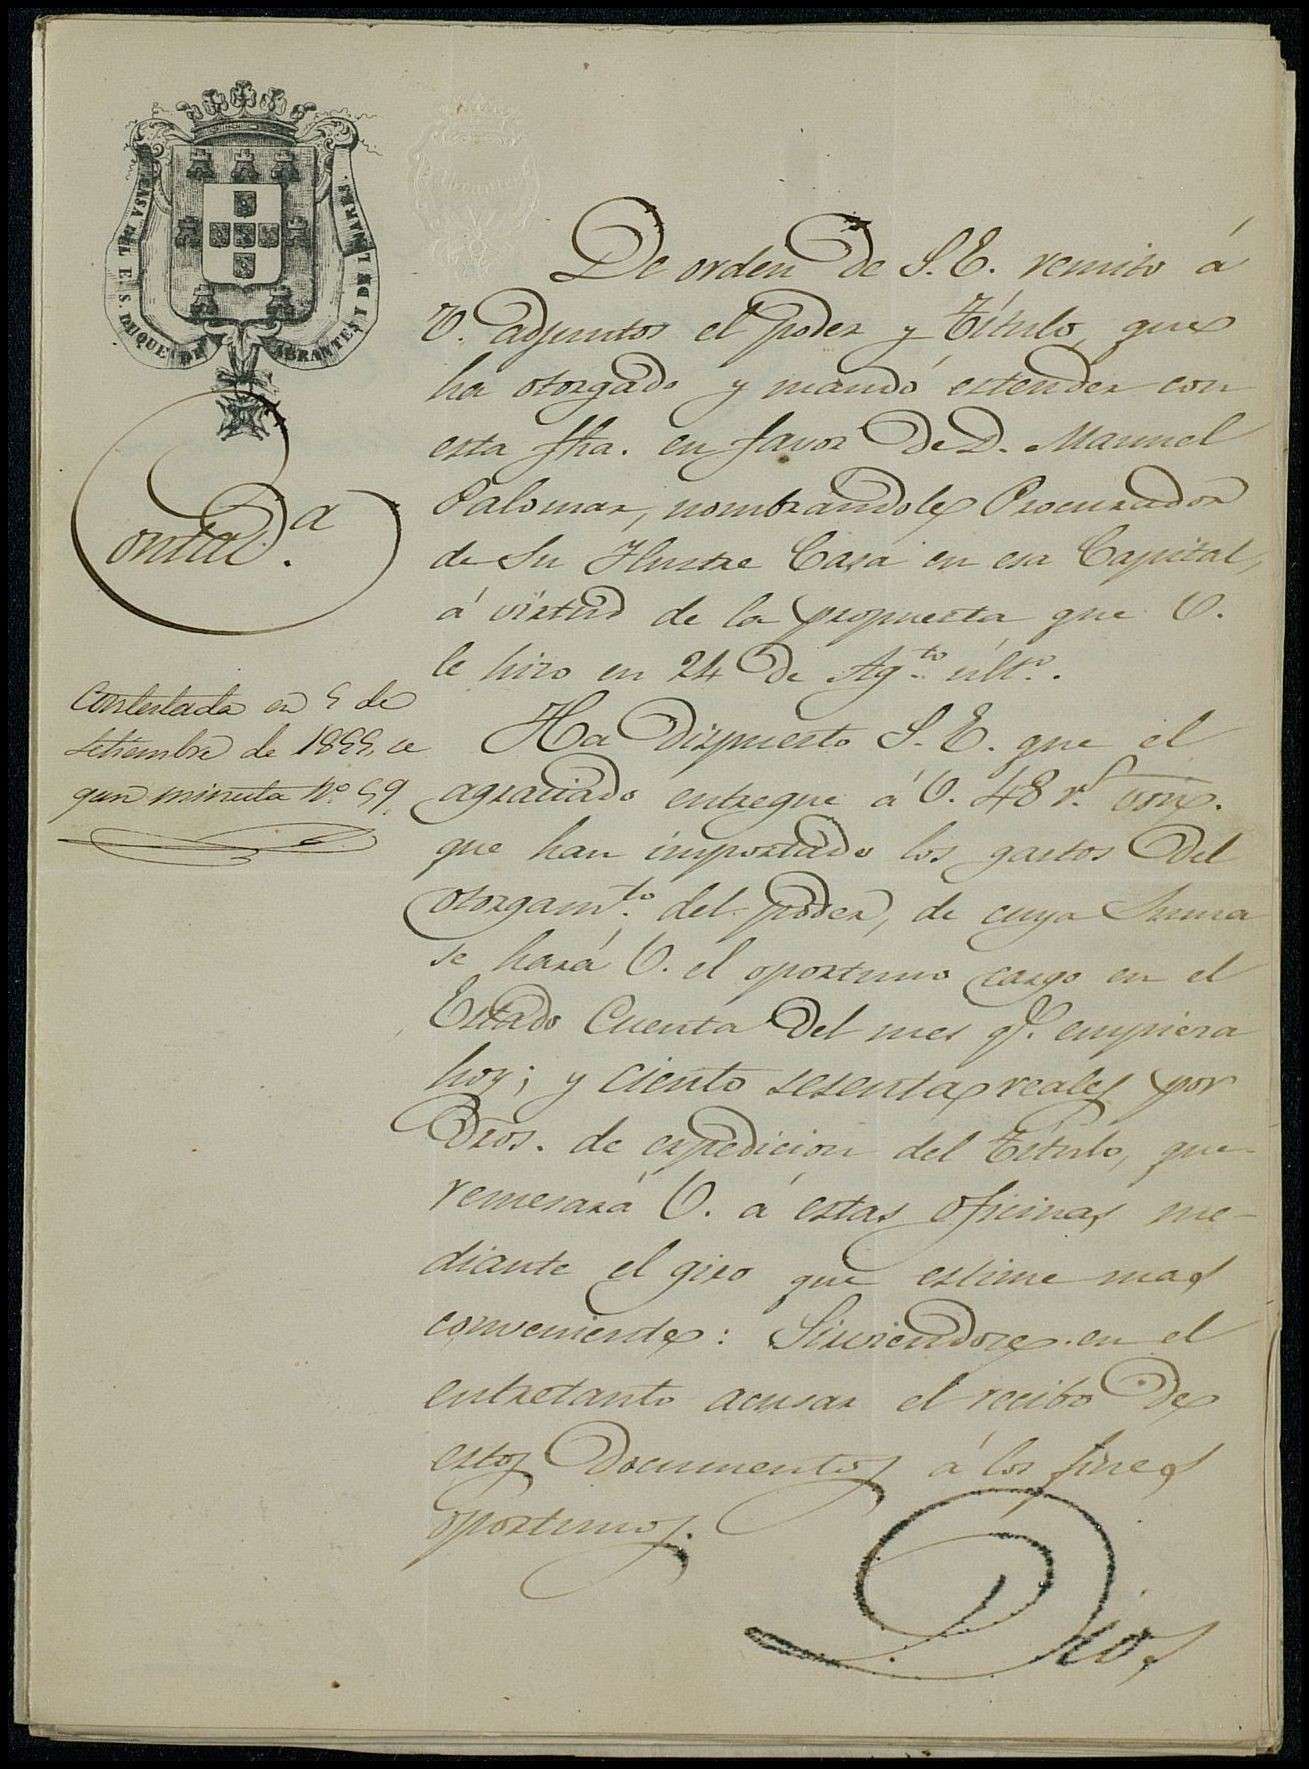 CASA DEL E. S. DUQUE DE ABRANTES Y DE LINARES.
Contad.ª
Contestada en 5 de
setiembre de 1855, se
gun minuta Nº. 59.
De orden de S. E. remito á
V. adjuntos el poder y Título, que
ha otorgado y mandó estender con
esta fha. en favor de D. Manuel
Palomar, nombrandole Procurador
de Su Ilustre Casa en esa Capital,
á virtud de la propuesta que V.
le hizo en 24 de Agto. últº.
Ha dispuesto S. E. que el
agraciado entregue á V. 48 rs. von.
que han importado los gastos del
otorgamto. del poder, de cuya Suma
se hará V. el oportuno cargo en el
Estado Cuenta del mes q.e empieza
hoy; y ciento sesenta reales por
Dros. de expedicion del Título, que
remesará V. á estas oficinas me-
diante el giro que estime mas
conveniente: Sirviendose en el
entretanto acusar el recibo de
estos Documentos á los fines
oportunos.
Dios